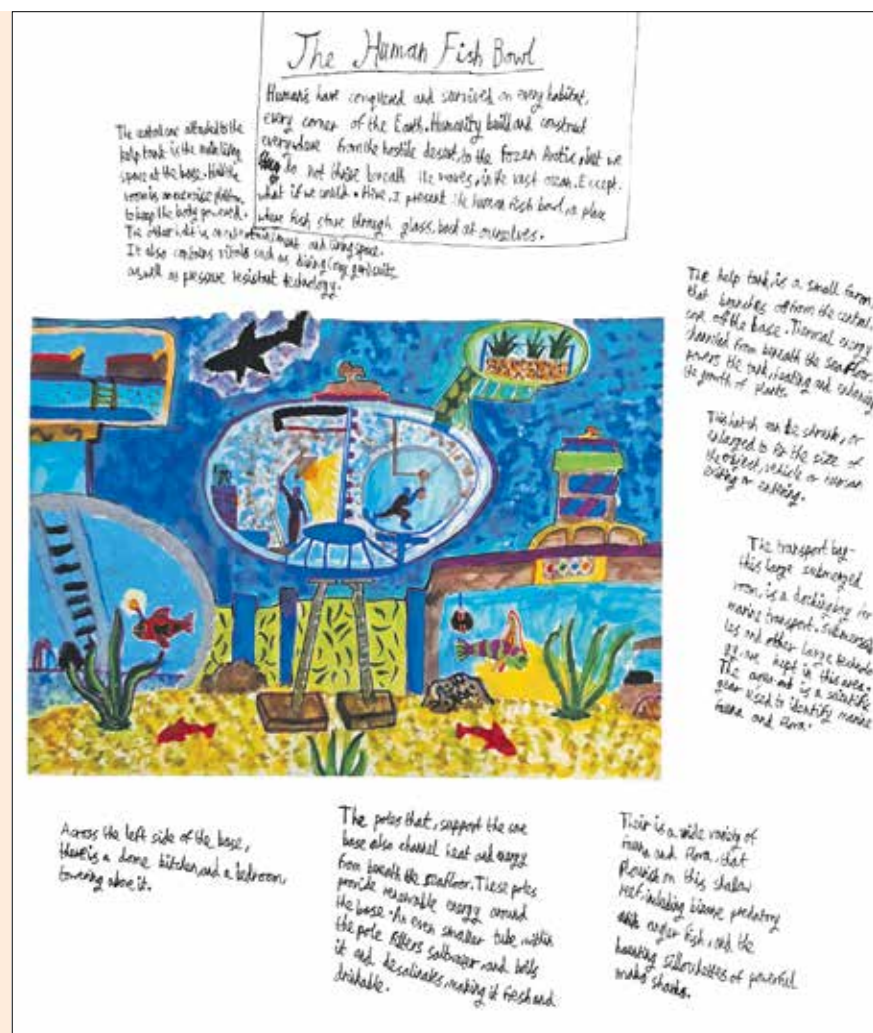 The Human Fish Bowl
Humans have conquered and survived on every habitat,
every corner of the Earth. Humanity build and construct
everywhere from the hostile desert, to the frozen Arctic, but we
do not thrive breath the waves, in the vast ocean. Except.
what if we could. Hire, I present the human fish bowl, a place
where fish stare through glass, back at ourselves.
The central one attended to the
kelp tank is the main living
space at the base. Half the
room is an exercise platform,
to keep the body powered.
The other half is an entertainment and living space.
It also contains vitals such as diving (oxy gen) suits
as well as pressure resistant technology.
The kelp tank, is a small farm,
that branches off from the central,
one off the base. Thermal energy
channeled from beneath the sea floor.
powers the tank, heating and enhancing
the growth of plants.
This hatch can be shrunk, or
enlarged to fit the size of
the object, vehicle or human
exiting or entering.
The transport bay-
this large submerged
room, is a docking bay for
marine transport. Submersib
les and other large technolo
gy are kept in this area.
The is a scientific
gear used to identify marine
fauna and flora.
Across the left side of the base,
there is a dome kitchen, and a bedroom,
towering above it.
The poles that, support the one
base also channel heat and energy
from beneath the seafloor. These poles
provide renewable energy around
the base. An even smaller tube, within
the pole filters saltwater, and boils
it and desalinates, making it fresh and
drinkable.
Their is a wide variety of
fauna and flora, that
flourish on this shalow
reef, including bizarre predatory
angler fish, and the
haunting sillouhattes of powerful
mako sharks.